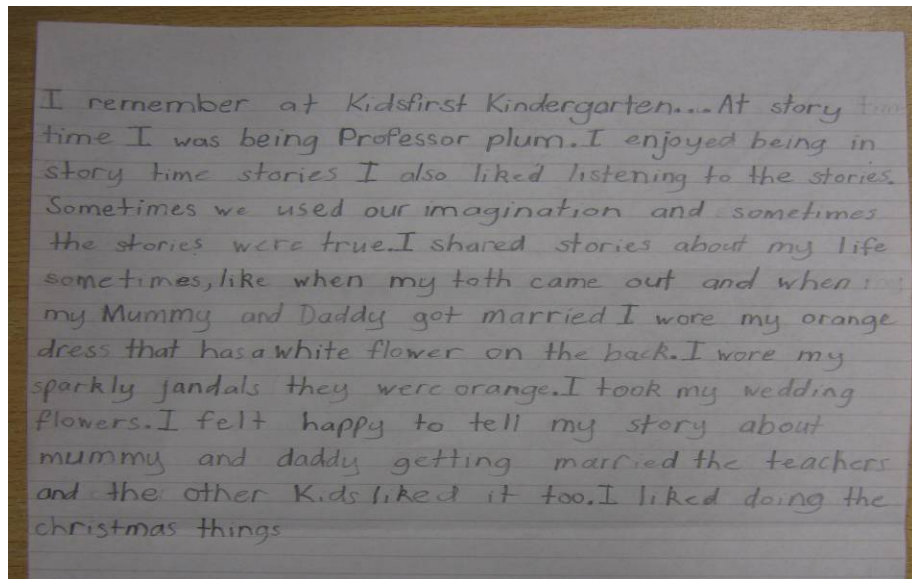 I remember at Kidsfirst Kindergarten.... At story
time I was being Professor plum. I enjoyed being in
story time stories I also liked listening to the stories.
Sometimes we used our imagination and sometimes
the stories were true. I shared stories about my life
sometimes, like when my toth came out and when
my Mummy and Daddy got married I wore my orange
dress that has a white flower on the back. I wore my
sparkly jandals they were orange. I took my wedding
flowers. I felt happy to tell my story about
mummy and daddy getting married the teachers
and the other Kids liked it too. I liked doing the
christmas things